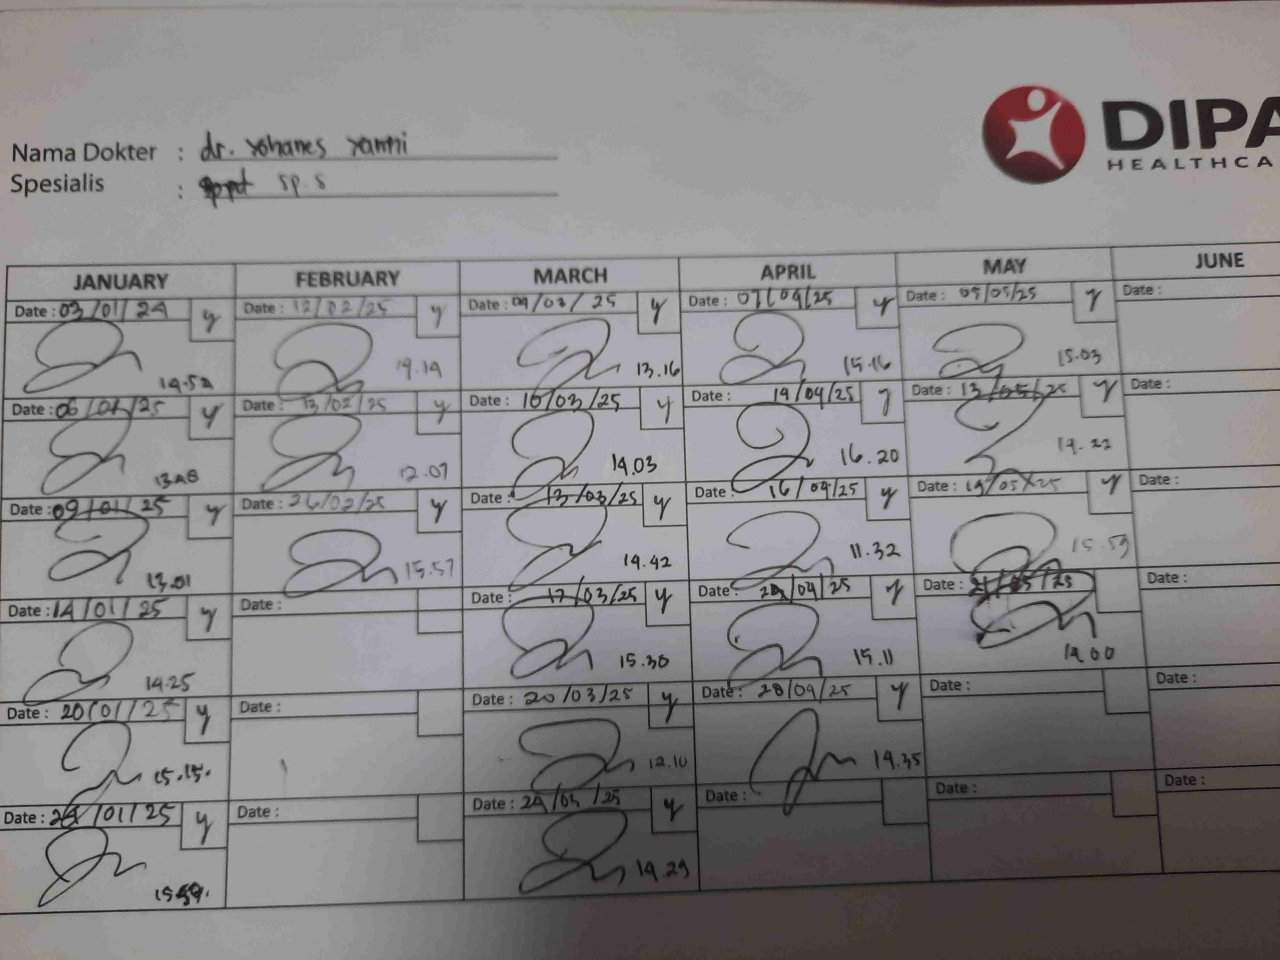 DIPA
HEALTHCA
Nama Dokter : dr. Yohanes
Spesialis : sp.s
JANUARY FEBRUARY MARCH APRIL MAY JUNE
Date : 03/01/24 y Date : 12/02/25 y Date : 09/03/25 y Date : 07/04/25 y Date : 05/05/25 y Date :
14.52 14.14 13.16 15.16 15.03
Date : 06/01/25 y Date : 13/02/25 y Date : 10/03/25 y Date : 14/04/25 y Date : 13/05/25 y Date :
12.07 14.03 16.20 14.22
Date : 09/01/25 y Date : 26/02/25 y Date : 13/03/25 y Date : 16/04/25 y Date : 19/05/25 y Date :
13.01 15.57 14.42 11.32 15.53
Date : 14/01/25 y Date : Date : 17/03/25 y Date : /04/25 y Date : 21/05/25 Date :
14.25 15.30 15.11 14.00
Date : 20/01/25 y Date : Date : 20/03/25 y Date : 28/04/25 y Date : Date :
15.15. 12.10 14.35
Date : /01/25 y Date : Date : 24/03/25 y Date : Date : Date :
14.29